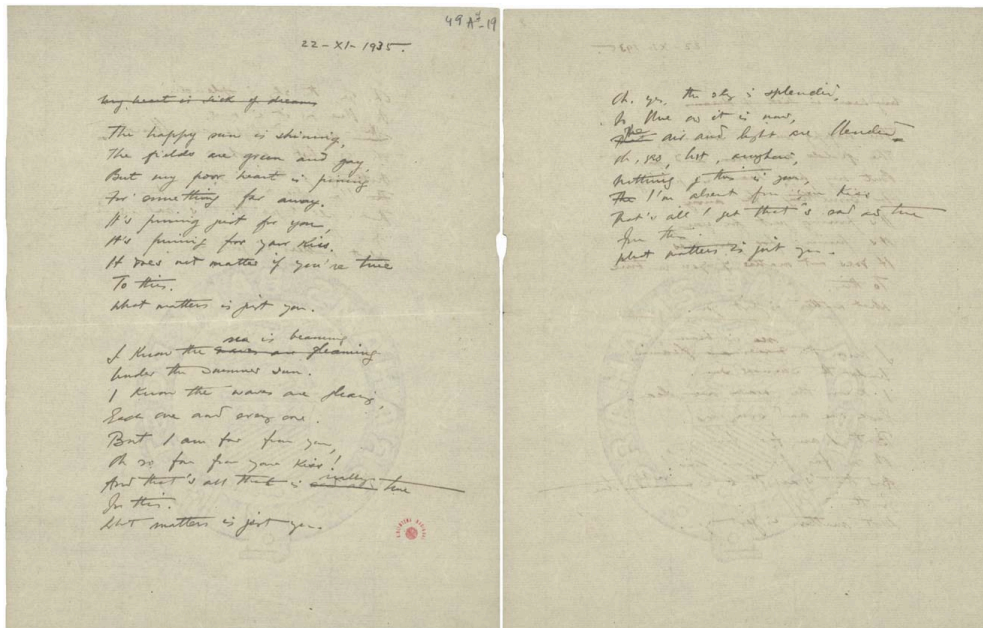 49 A3-19
22-XI-1935.
My heart is sick of dreams
The happy sun is shining,
The fields are green and gay,
But my poor heart is pining
For something far away.
It's pining just for you,
It's pining for your kiss.
It does not matter if you're true
To this.
What matters is just you.
sea is beaming
I know the waves are gleaming
Under the summer sun.
I know the waves are gleaming,
Each one and every one.
But I am far from you,
Oh so far from your kiss!
And that's all that is really true
In this.
What matters is just you.
Oh, yes, the sky is splendid,
So blue as it is now,
The air and light are blended
Oh, yes, but, anyhow,
Nothing of this is you,
I'm absent from your kiss
That's all I get that's sad and true
In this.
What matters is just you.